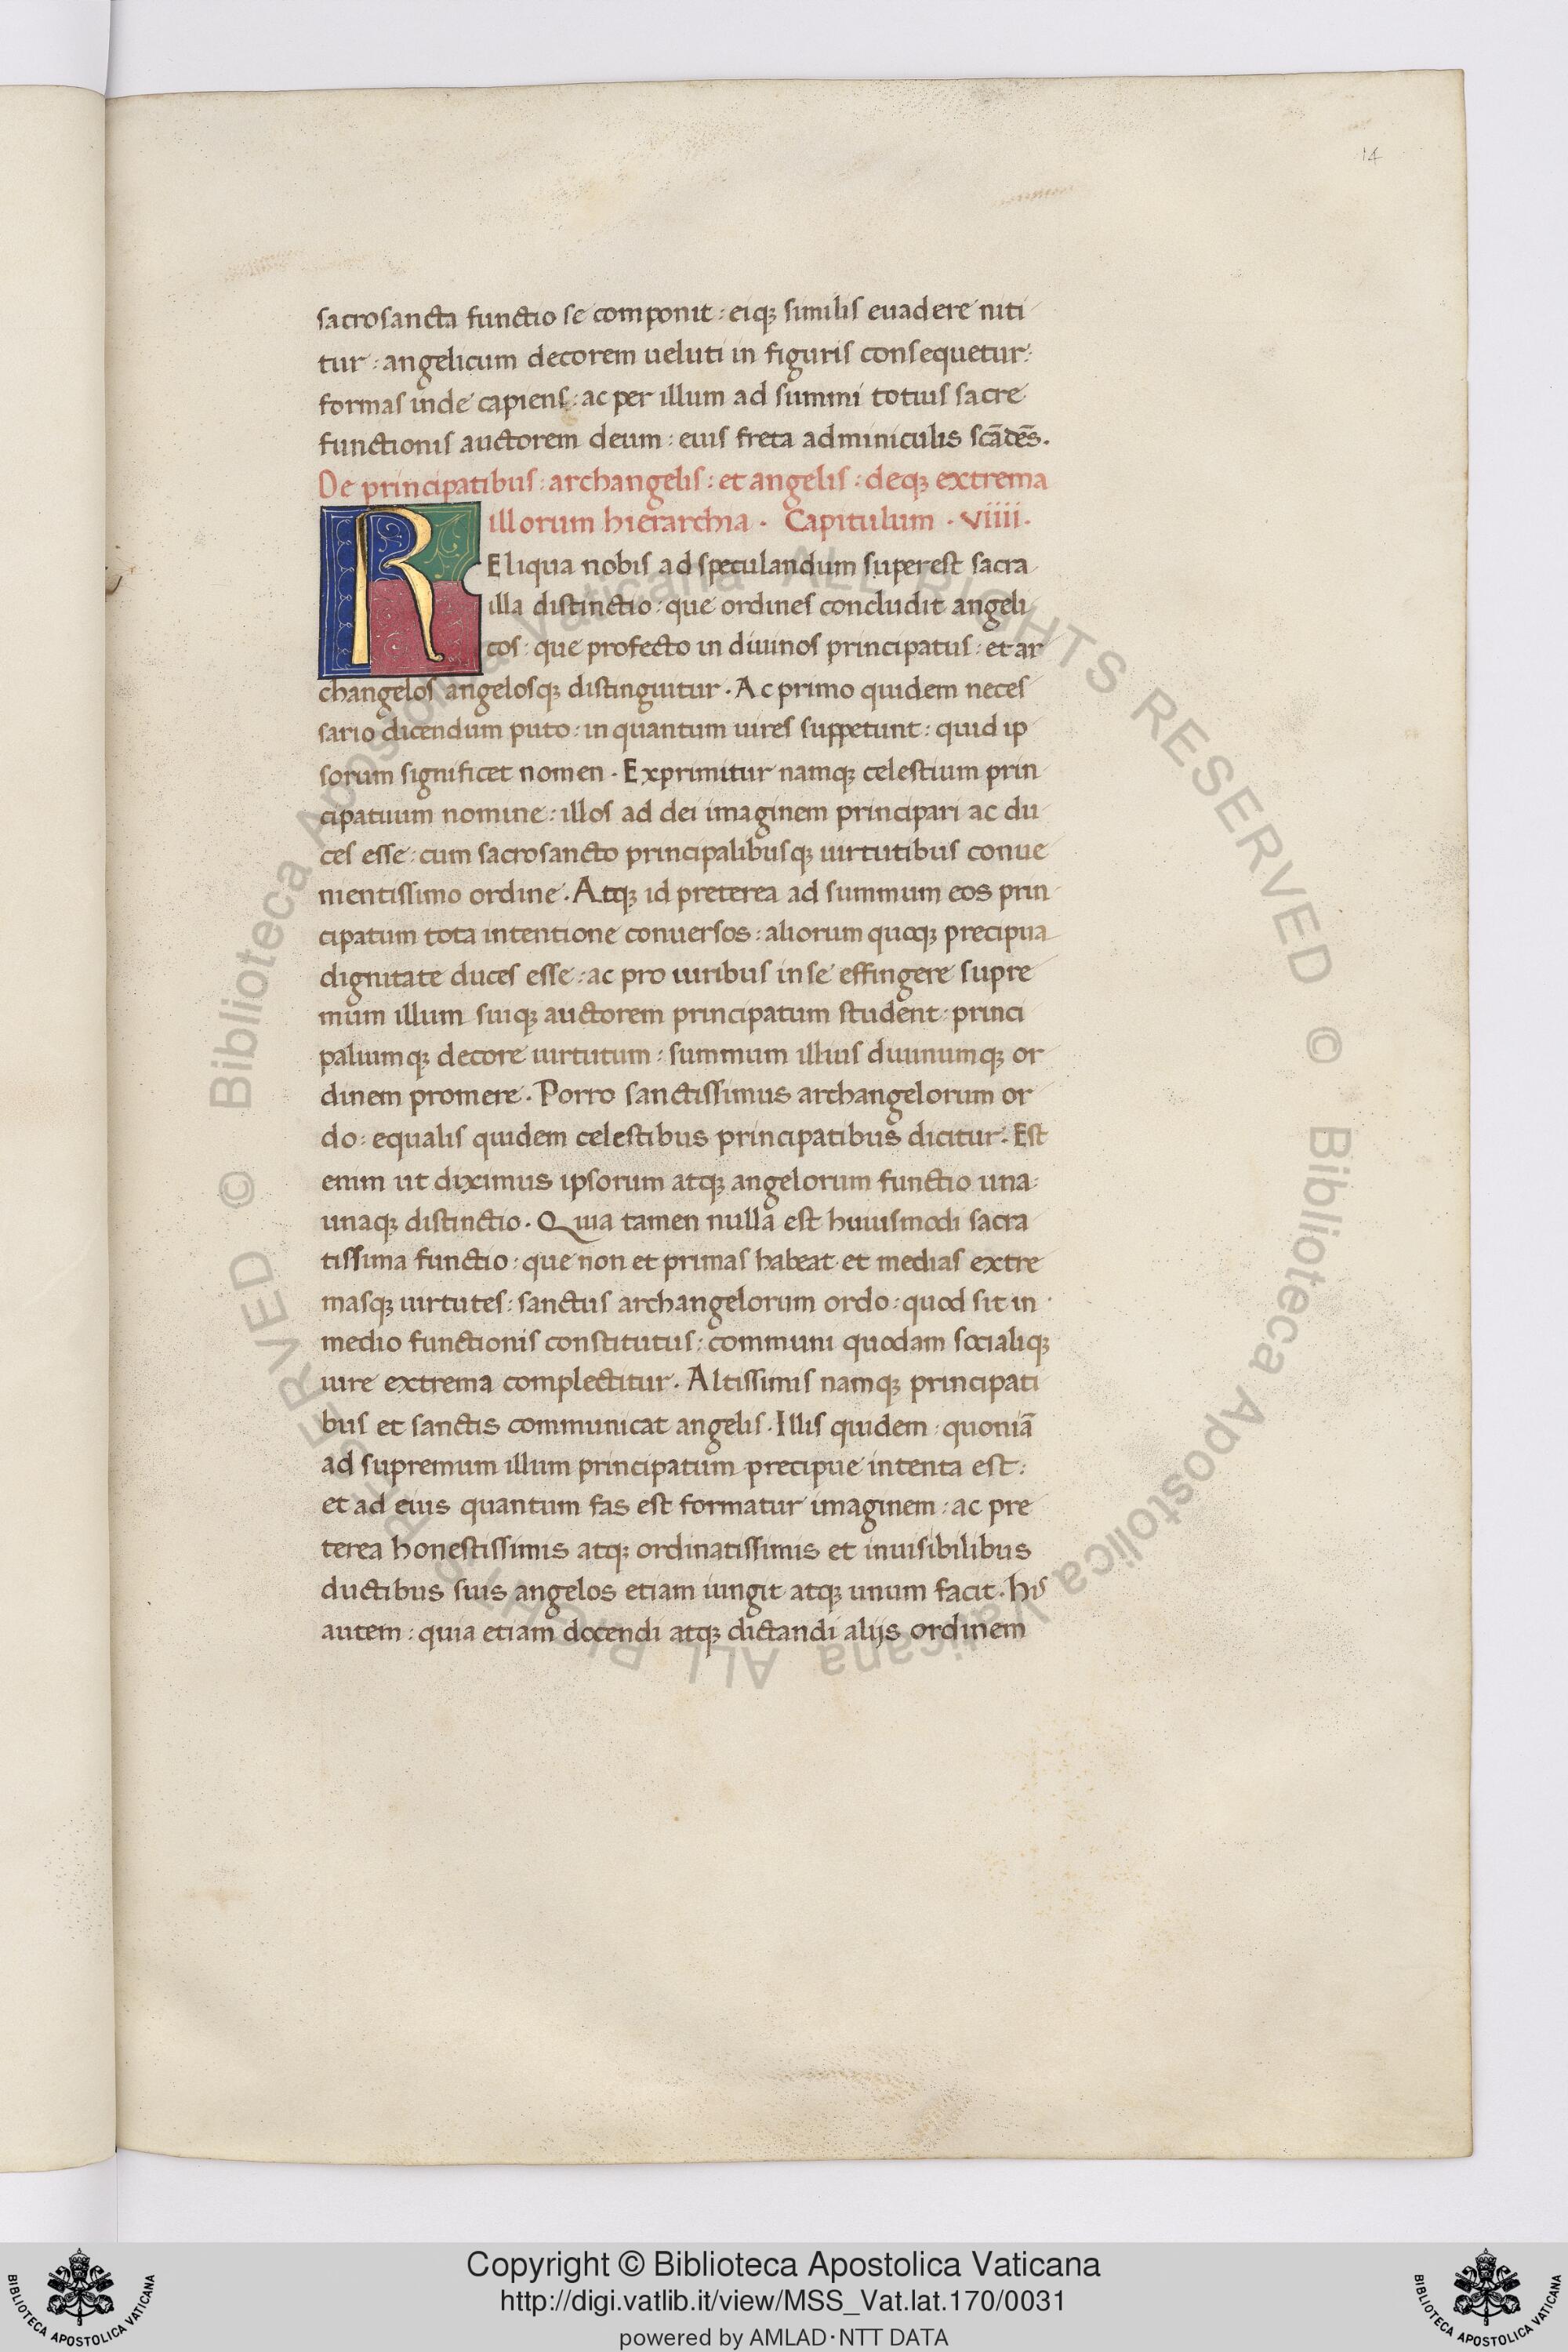 14
sacrosancta functio se componit : eiqꝫ similis euadere niti
tur : angelicum decorem ueluti in figuris consequetur :
formas inde capiens : ac per illum ad summi totius sacre
functionis auctorem deum : eius freta adminiculis scādēs.
De principatibus : archangelis : et angelis : deqꝫ extrema
illorum hierarchia . Capitulum . viiii.
REliqua nobis ad speculandum superest sacra
illa distinctio : que ordines concludit angeli
cos : que profecto in diuinos principatus : et ar
changelos angelosqꝫ distinguitur . Ac primo quidem neces
sario dicendum puto : in quantum uires suppetunt : quid ip
sorum significet nomen . Exprimitur namqꝫ celestium prin
cipatuum nomine : illos ad dei imaginem principari ac du
ces esse : cum sacrosancto principalibusqꝫ uirtutibus conue
nientissimo ordine . Atqꝫ id preterea ad summum eos prin
cipatum tota intentione conuersos : aliorum quoqꝫ precipua
dignitate duces esse : ac pro uiribus in se effingere supre
mum illum suiqꝫ auctorem principatum student : princi
paliumqꝫ decore uirtutum : summum illius diuinumqꝫ or
dinem promere . Porro sanctissimus archangelorum or
do : equalis quidem celestibus principatibus dicitur : Est
enim ut diximus ipsorum atqꝫ angelorum functio una :
unaqꝫ distinctio . Quia tamen nulla est huiusmodi sacra
tissima functio : que non et primas habeat et medias extre
masqꝫ uirtutes : sanctus archangelorum ordo : quod sit in
medio functionis constitutus : communi quodam socialiqꝫ
iure extrema complectitur . Altissimis namqꝫ principati
bus et sanctis communicat angelis . Illis quidem : quoniā
ad supremum illum principatum precipue intenta est :
et ad eius quantum fas est formatur imaginem : ac pre
terea honestissimis atqꝫ ordinatissimis et inuisibilibus
ductibus suis angelos etiam iungit atqꝫ unum facit . his
autem : quia etiam docendi atqꝫ dictandi alijs ordinem
© Biblioteca Apostolica Vaticana ALL RIGHTS RESERVED
© Biblioteca Apostolica Vaticana ALL RIGHTS RESERVED
BIBLIOTECA APOSTOLICA VATICANA
Copyright © Biblioteca Apostolica Vaticana
http://digi.vatlib.it/view/MSS_Vat.lat.170/0031
powered by AMLAD·NTT DATA
BIBLIOTECA APOSTOLICA VATICANA